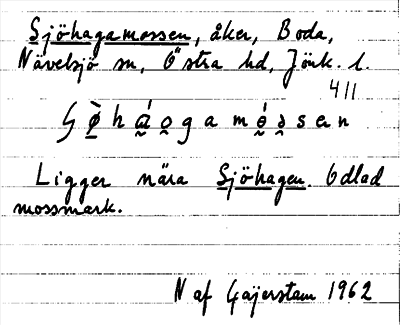 Sjöhagamossen, åker, Boda,
Nävelsjö sn, Östra hd, Jönk. l.
411
Ligger nära Sjöhagen. Odlad
mossmark.
N af Gajerstam 1962